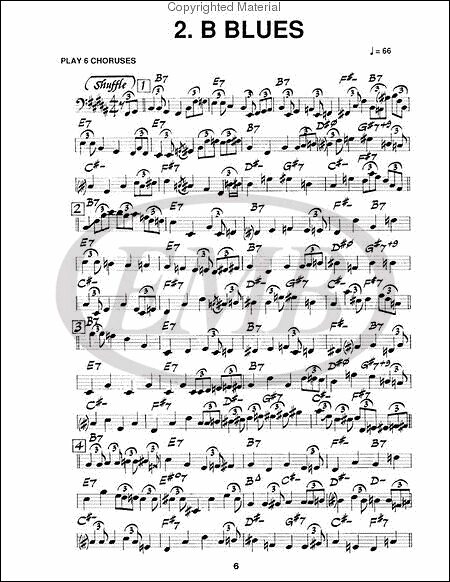 Copyrighted Material
2. B BLUES
PLAY 6 CHORUSES
♩ = 66
Shuffle
1 B7 E7 B7 F#- B7
E7 B7 D#ø G#7+9
C#- F#7 B7 G#7 C#- F#7
2 B7 E7 B7 F#- B7
E7 B7 D#ø G#7+9
C#- F#7 D#- G#7 C#- F#7
EMB
3 B7 E7 B7 F#- B7
E7 B7 D#- G#7
C#- F#7 B7 G#7 C#- F#7
4 B7 E7 B7
E7 E#°7 B△ C#- D#-
C#- F#7 D#- G#7 C#- F#7
6